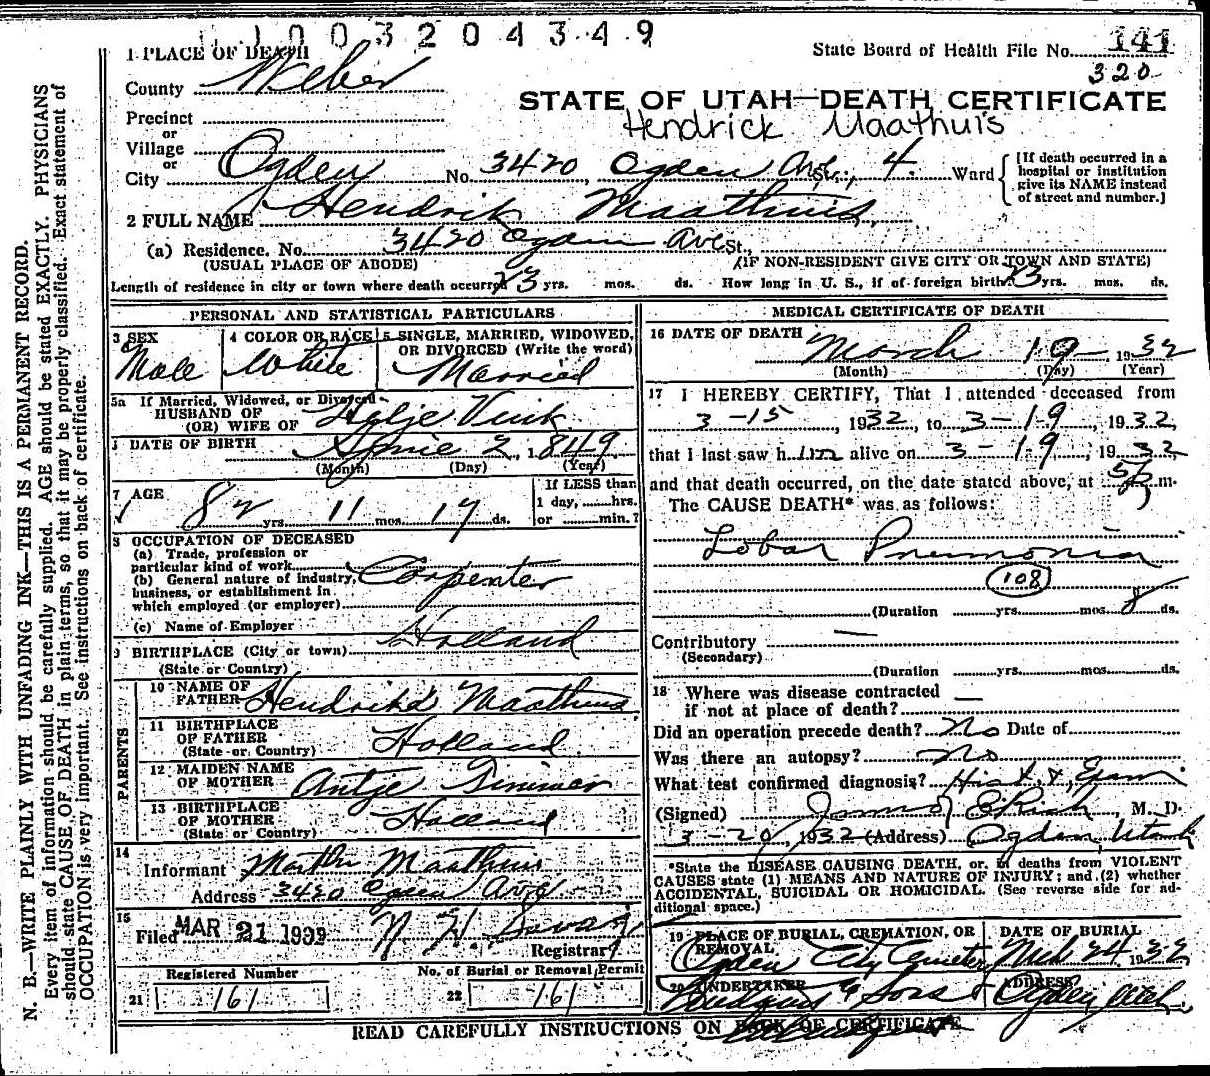 1 0 0 3 2 0 4 3 4 9
1 PLACE OF DEATH
State Board of Health File No. 141
320
County Weber
STATE OF UTAH—DEATH CERTIFICATE
Hendrick Maathuis
Precinct
or
Village
or
City Ogden No. 3420 Ogden Ave St., 4. Ward
[If death occurred in a
hospital or institution
give its NAME instead
of street and number.]
2 FULL NAME Hendrik Maathuis
(a) Residence. No. 3420 Ogden Ave St.,
(USUAL PLACE OF ABODE) (IF NON-RESIDENT GIVE CITY OR TOWN AND STATE)
Length of residence in city or town where death occurred 23 yrs. mos. ds. How long in U. S., if of foreign birth? 23 yrs. mos. ds.
PERSONAL AND STATISTICAL PARTICULARS
3 SEX
Male
4 COLOR OR RACE
White
5 SINGLE, MARRIED, WIDOWED,
OR DIVORCED (Write the word)
Married
5a If Married, Widowed, or Divorced
HUSBAND OF
(OR) WIFE OF Vink
DATE OF BIRTH 2, 1849
(Month) (Day) (Year)
7 AGE
82 yrs. 11 mos. 17 ds.
If LESS than
1 day, hrs.
or min.?
8 OCCUPATION OF DECEASED
(a) Trade, profession or
particular kind of work
(b) General nature of industry,
business, or establishment in
which employed (or employer)
Carpenter
(c) Name of Employer
9 BIRTHPLACE (City or town) Holland
(State or Country)
PARENTS
10 NAME OF
FATHER Maathuis
11 BIRTHPLACE
OF FATHER Holland
(State or Country)
12 MAIDEN NAME
OF MOTHER Antje
13 BIRTHPLACE
OF MOTHER Holland
(State or Country)
14
Informant Maathuis
Address 3420 Ogden Ave
15
Filed MAR 21 1932
Registrar
Registered Number
21 161
No. of Burial or Removal Permit
22 161
MEDICAL CERTIFICATE OF DEATH
16 DATE OF DEATH
March 19 1932
(Month) (Day) (Year)
17 I HEREBY CERTIFY, That I attended deceased from
3-15, 1932, to 3-19, 1932,
that I last saw him alive on 3-19, 1932
and that death occurred, on the date stated above, at m.
The CAUSE DEATH* was as follows:
Lobar Pneumonia
108
(Duration yrs. mos. 8 ds.
Contributory —
(Secondary)
(Duration yrs. mos. ds.
18 Where was disease contracted —
if not at place of death?
Did an operation precede death? No Date of
Was there an autopsy? No
What test confirmed diagnosis? Hist & Exam
(Signed) M. D.
3-20, 1932 (Address) Ogden, Utah
*State the DISEASE CAUSING DEATH, or, in deaths from VIOLENT
CAUSES state (1) MEANS AND NATURE OF INJURY; and (2) whether
ACCIDENTAL, SUICIDAL OR HOMICIDAL. (See reverse side for ad-
ditional space.)
19 PLACE OF BURIAL, CREMATION, OR
REMOVAL
Ogden City Cemetery
DATE OF BURIAL
Mch 24 1932
20 UNDERTAKER
& Sons
ADDRESS
Ogden Utah
READ CAREFULLY INSTRUCTIONS ON BACK OF CERTIFICATE
N. B.—WRITE PLAINLY WITH UNFADING INK—THIS IS A PERMANENT RECORD.
Every item of information should be carefully supplied. AGE should be stated EXACTLY. PHYSICIANS
should state CAUSE OF DEATH in plain terms, so that it may be properly classified. Exact statement of
OCCUPATION is very important. See instructions on back of certificate.